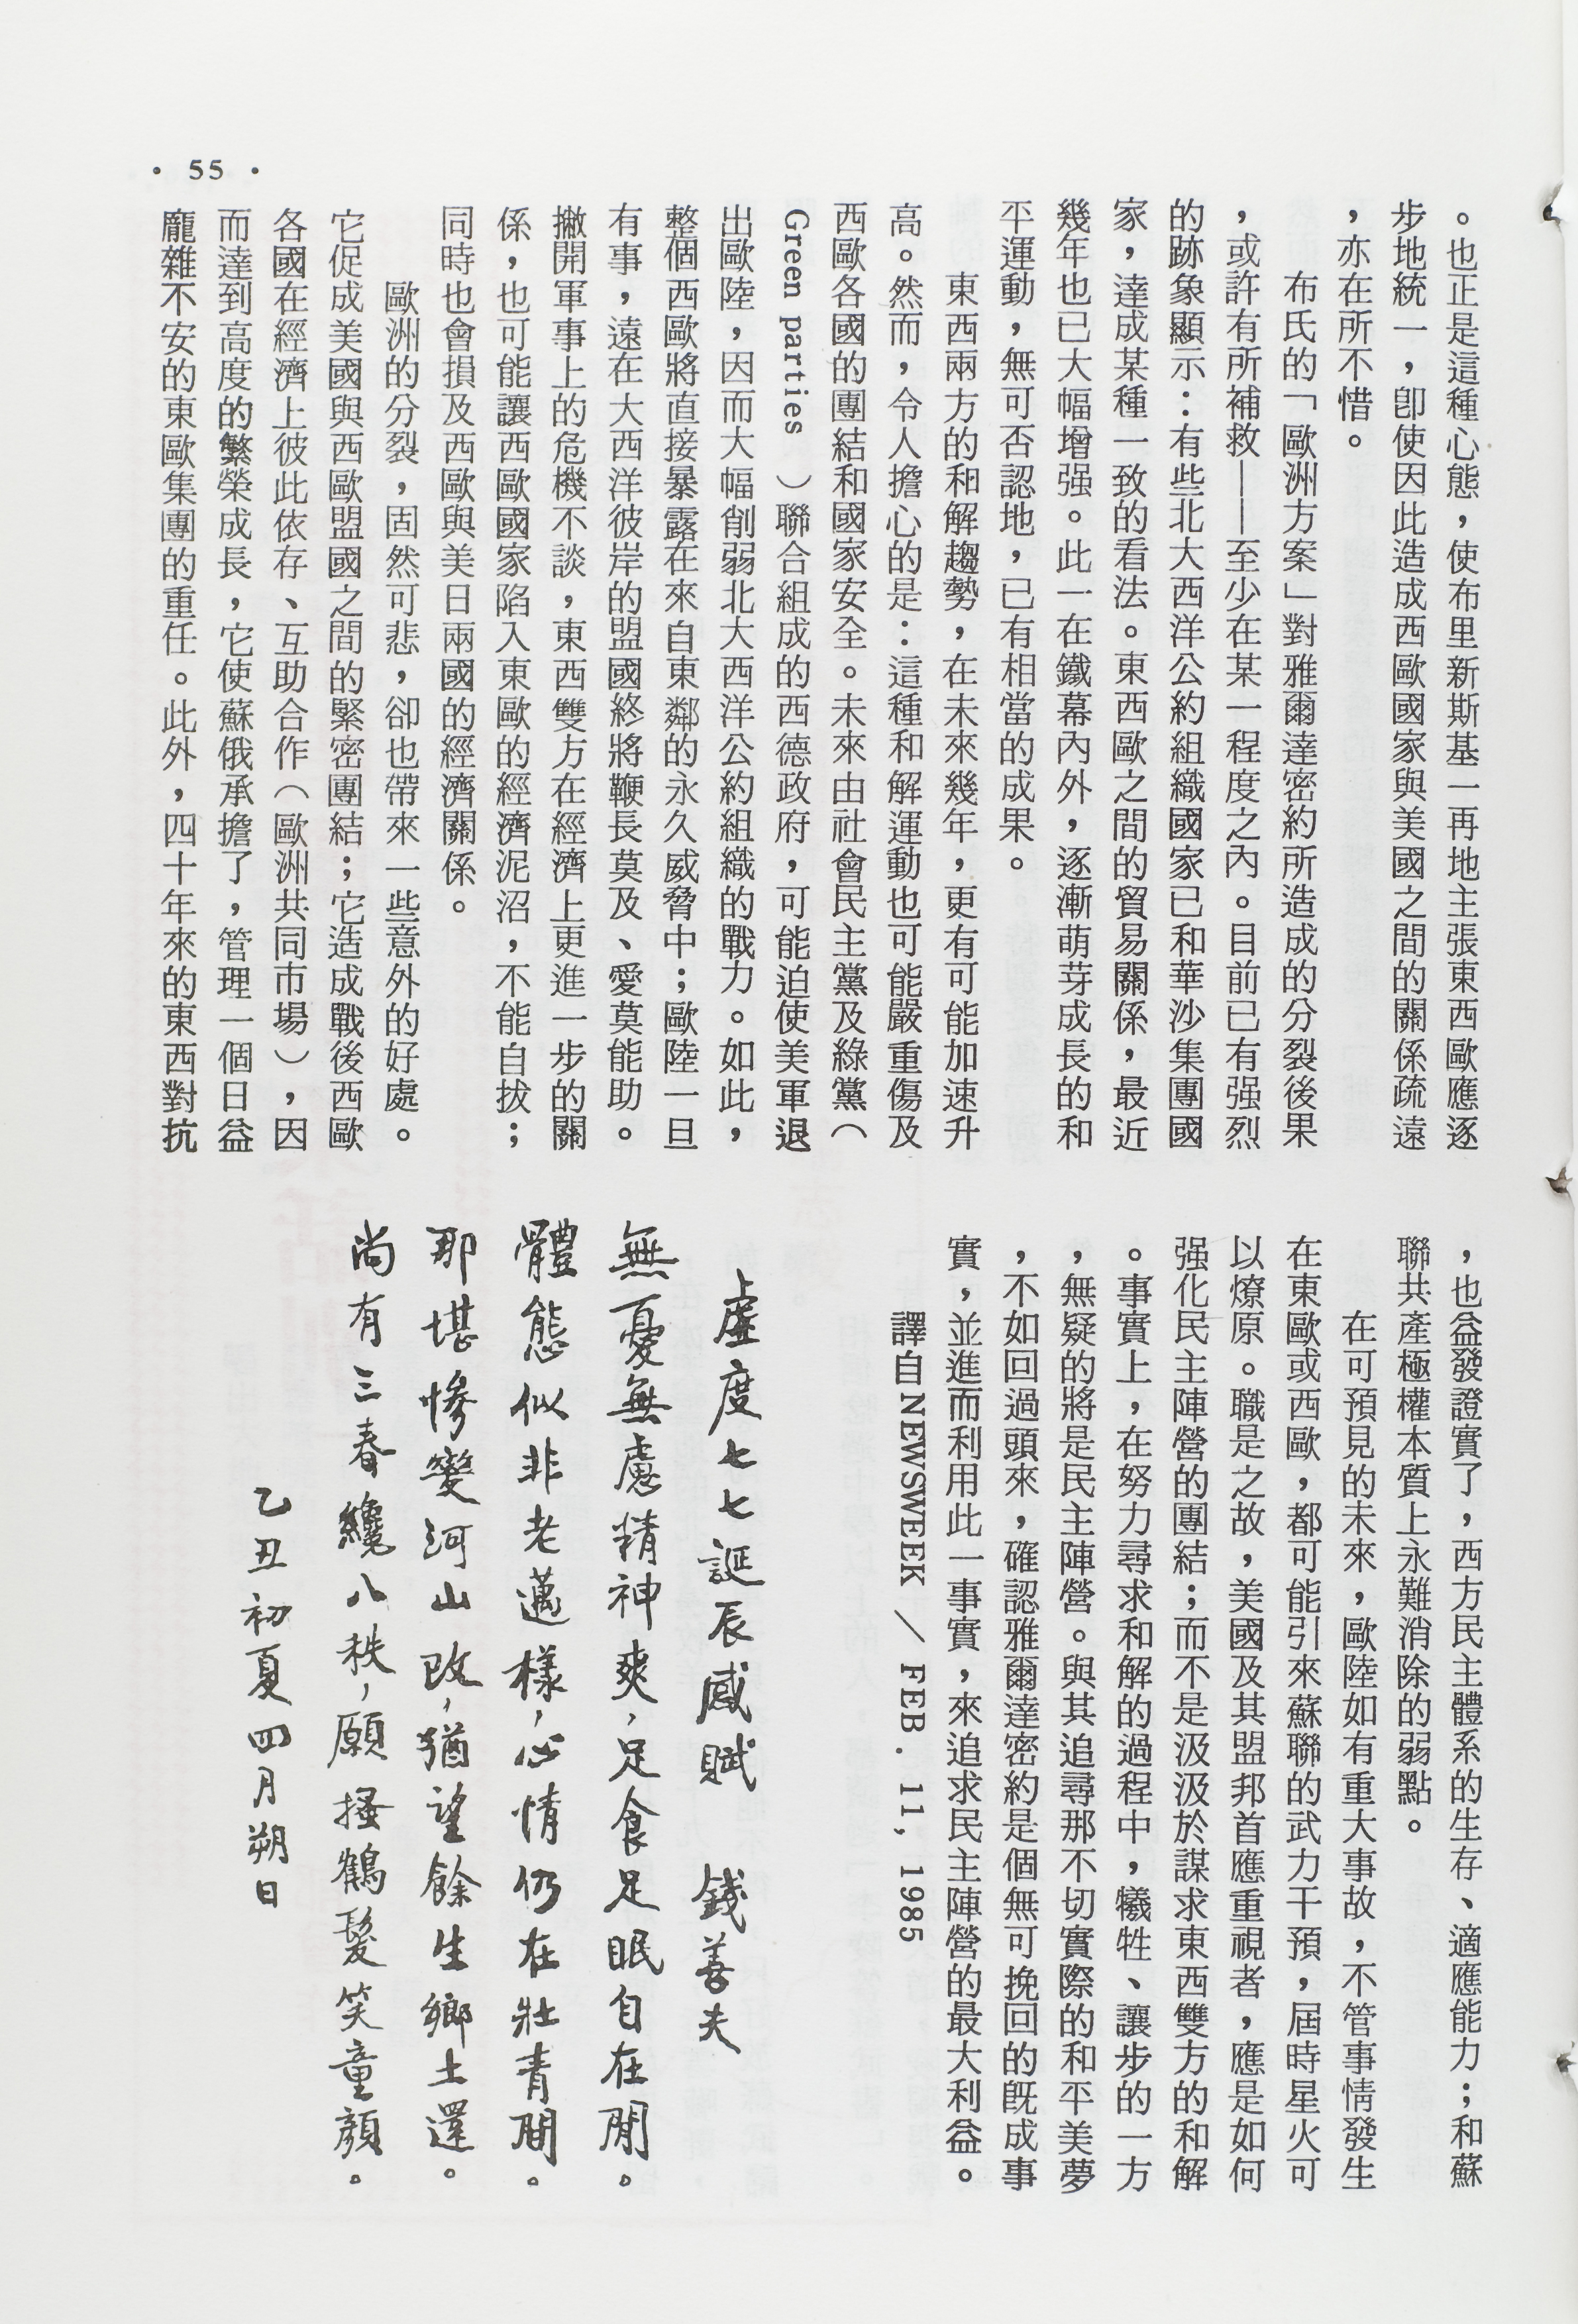 。也正是這種心態，使布里新斯基一再地主張東西歐應逐
步地統一，卽使因此造成西歐國家與美國之間的關係疏遠
，亦在所不惜。
布氏的「歐洲方案」對雅爾達密約所造成的分裂後果
，或許有所補救——至少在某一程度之內。目前已有强烈
的跡象顯示：有些北大西洋公約組織國家已和華沙集團國
家，達成某種一致的看法。東西歐之間的貿易關係，最近
幾年也已大幅增强。此一在鐵幕內外，逐漸萌芽成長的和
平運動，無可否認地，已有相當的成果。
東西兩方的和解趨勢，在未來幾年，更有可能加速升
高。然而，令人擔心的是：這種和解運動也可能嚴重傷及
西歐各國的團結和國家安全。未來由社會民主黨及綠黨（
Green parties ）聯合組成的西德政府，可能迫使美軍退
出歐陸，因而大幅削弱北大西洋公約組織的戰力。如此，
整個西歐將直接暴露在來自東鄰的永久威脅中；歐陸一旦
有事，遠在大西洋彼岸的盟國終將鞭長莫及、愛莫能助。
撇開軍事上的危機不談，東西雙方在經濟上更進一步的關
係，也可能讓西歐國家陷入東歐的經濟泥沼，不能自拔；
同時也會損及西歐與美日兩國的經濟關係。
歐洲的分裂，固然可悲，卻也帶來一些意外的好處。
它促成美國與西歐盟國之間的緊密團結；它造成戰後西歐
各國在經濟上彼此依存、互助合作（歐洲共同市場），因
而達到高度的繁榮成長，它使蘇俄承擔了，管理一個日益
龐雜不安的東歐集團的重任。此外，四十年來的東西對抗
，也益發證實了，西方民主體系的生存、適應能力；和蘇
聯共產極權本質上永難消除的弱點。
在可預見的未來，歐陸如有重大事故，不管事情發生
在東歐或西歐，都可能引來蘇聯的武力干預，屆時星火可
以燎原。職是之故，美國及其盟邦首應重視者，應是如何
强化民主陣營的團結；而不是汲汲於謀求東西雙方的和解
。事實上，在努力尋求和解的過程中，犧牲、讓步的一方
，無疑的將是民主陣營。與其追尋那不切實際的和平美夢
，不如回過頭來，確認雅爾達密約是個無可挽回的旣成事
實，並進而利用此一事實，來追求民主陣營的最大利益。
譯自NEWSWEEK ／ FEB . 11, 1985
虛度七七誕辰感賦　錢善夫
無憂無慮精神爽，足食足眠自在閒。
體態似非老邁樣，心情仍在壯青間。
那堪慘變河山改，猶望餘生鄉土還。
尚有三春纔八秩，願搔鶴髮笑童顏。
乙丑初夏四月朔日
• 55 •